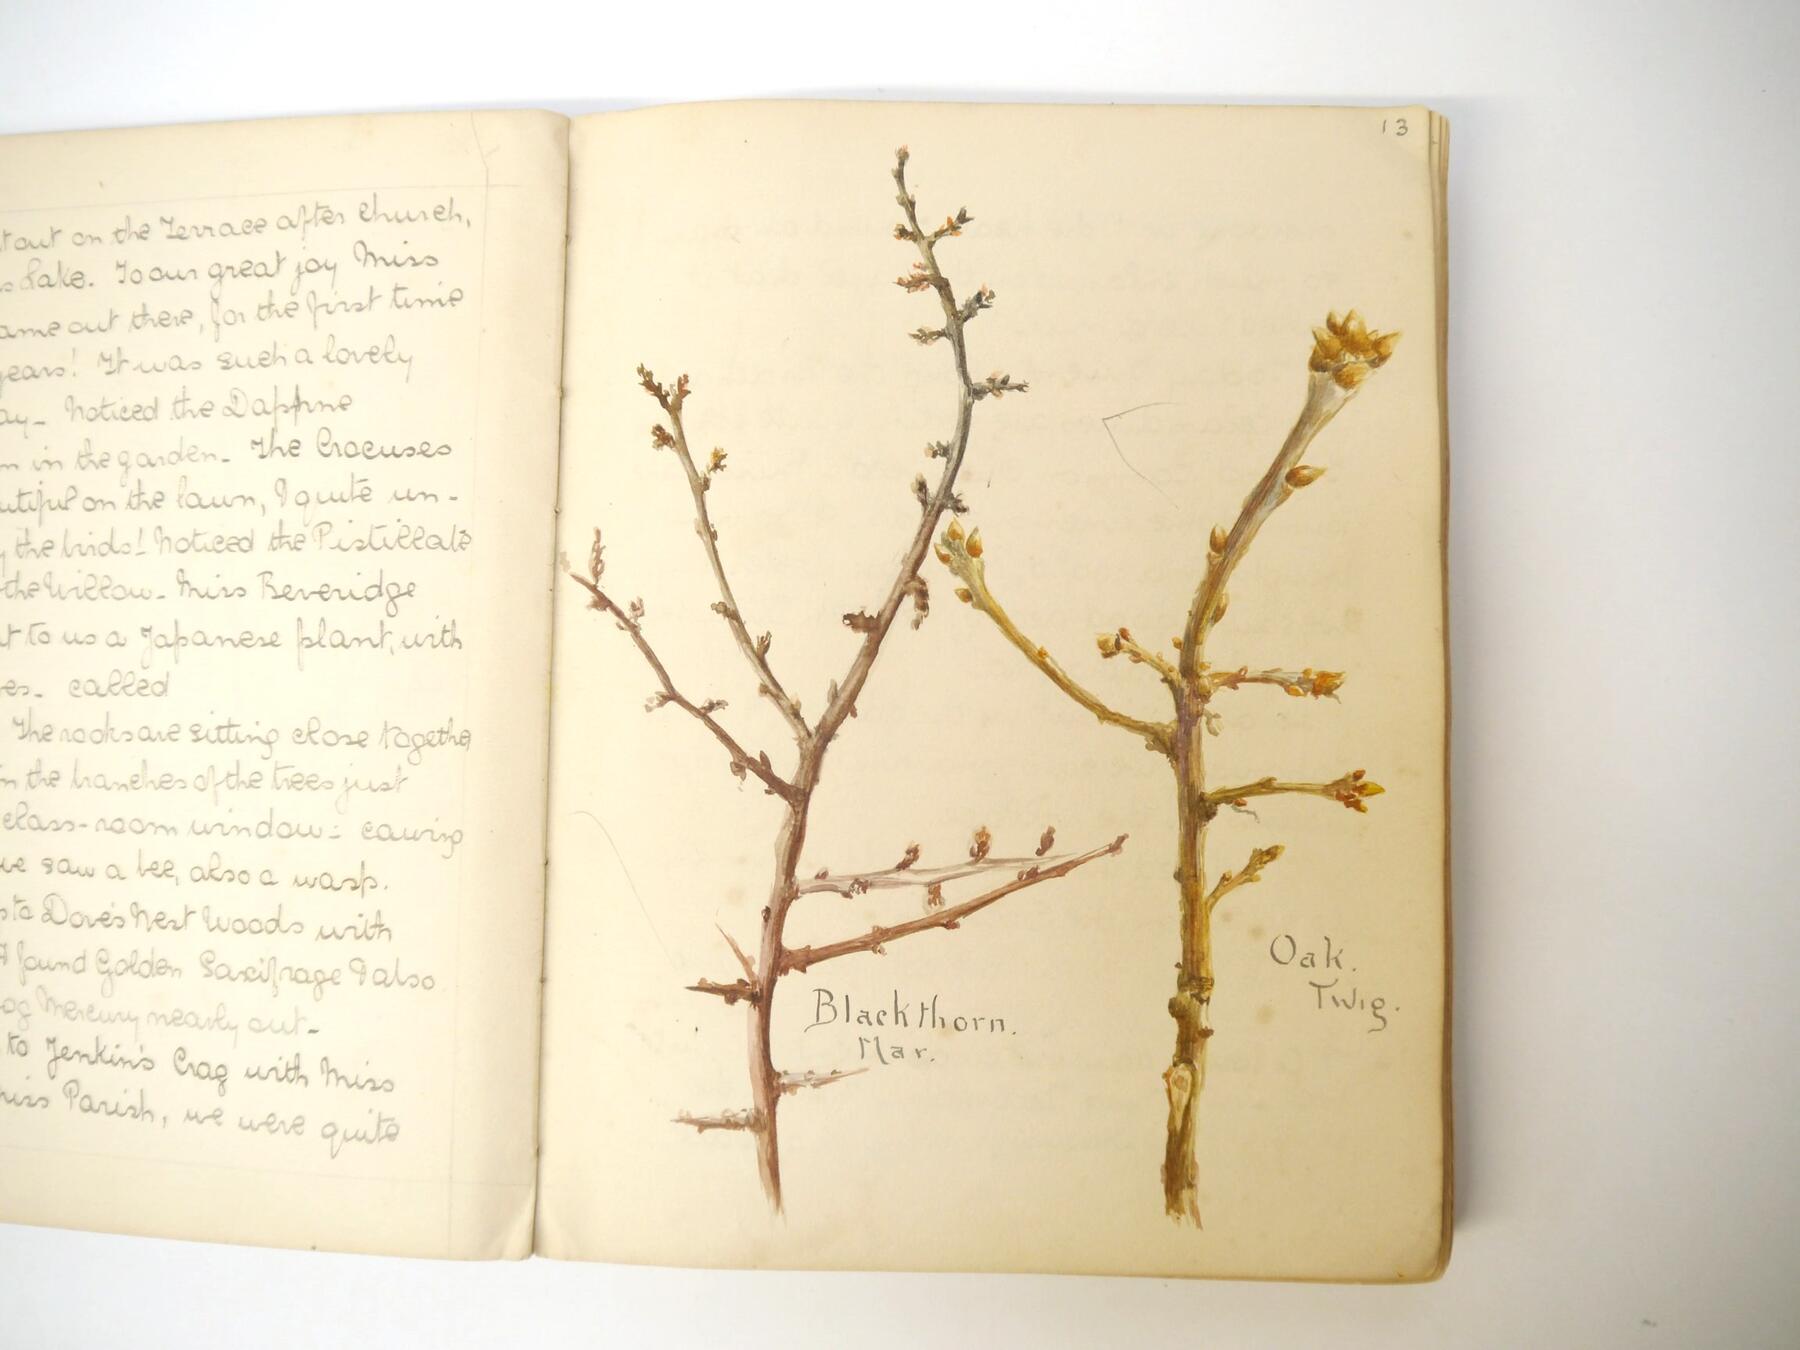 out on the Terrace after church,
Lake. To our great joy Miss
came out there, for the first time
years! It was such a lovely
ay- Noticed the Daphne
in the garden- The Crocuses
utiful on the lawn, I quite un-
the birds! Noticed the Pistillate
the Willow- Miss Beveridge
t to us a Japanese plant, with
es- called
The rooks are sitting close togethe
n the branches of the trees just
class-room window: cawing
we saw a bee, also a wasp.
to Dove's Nest Woods with
I found Golden Saxifrage I also
og Mercury nearly out-
to Jenkin's Crag with Miss
Miss Parish, we were quite
13
Blackthorn.
Mar.
Oak.
Twig.